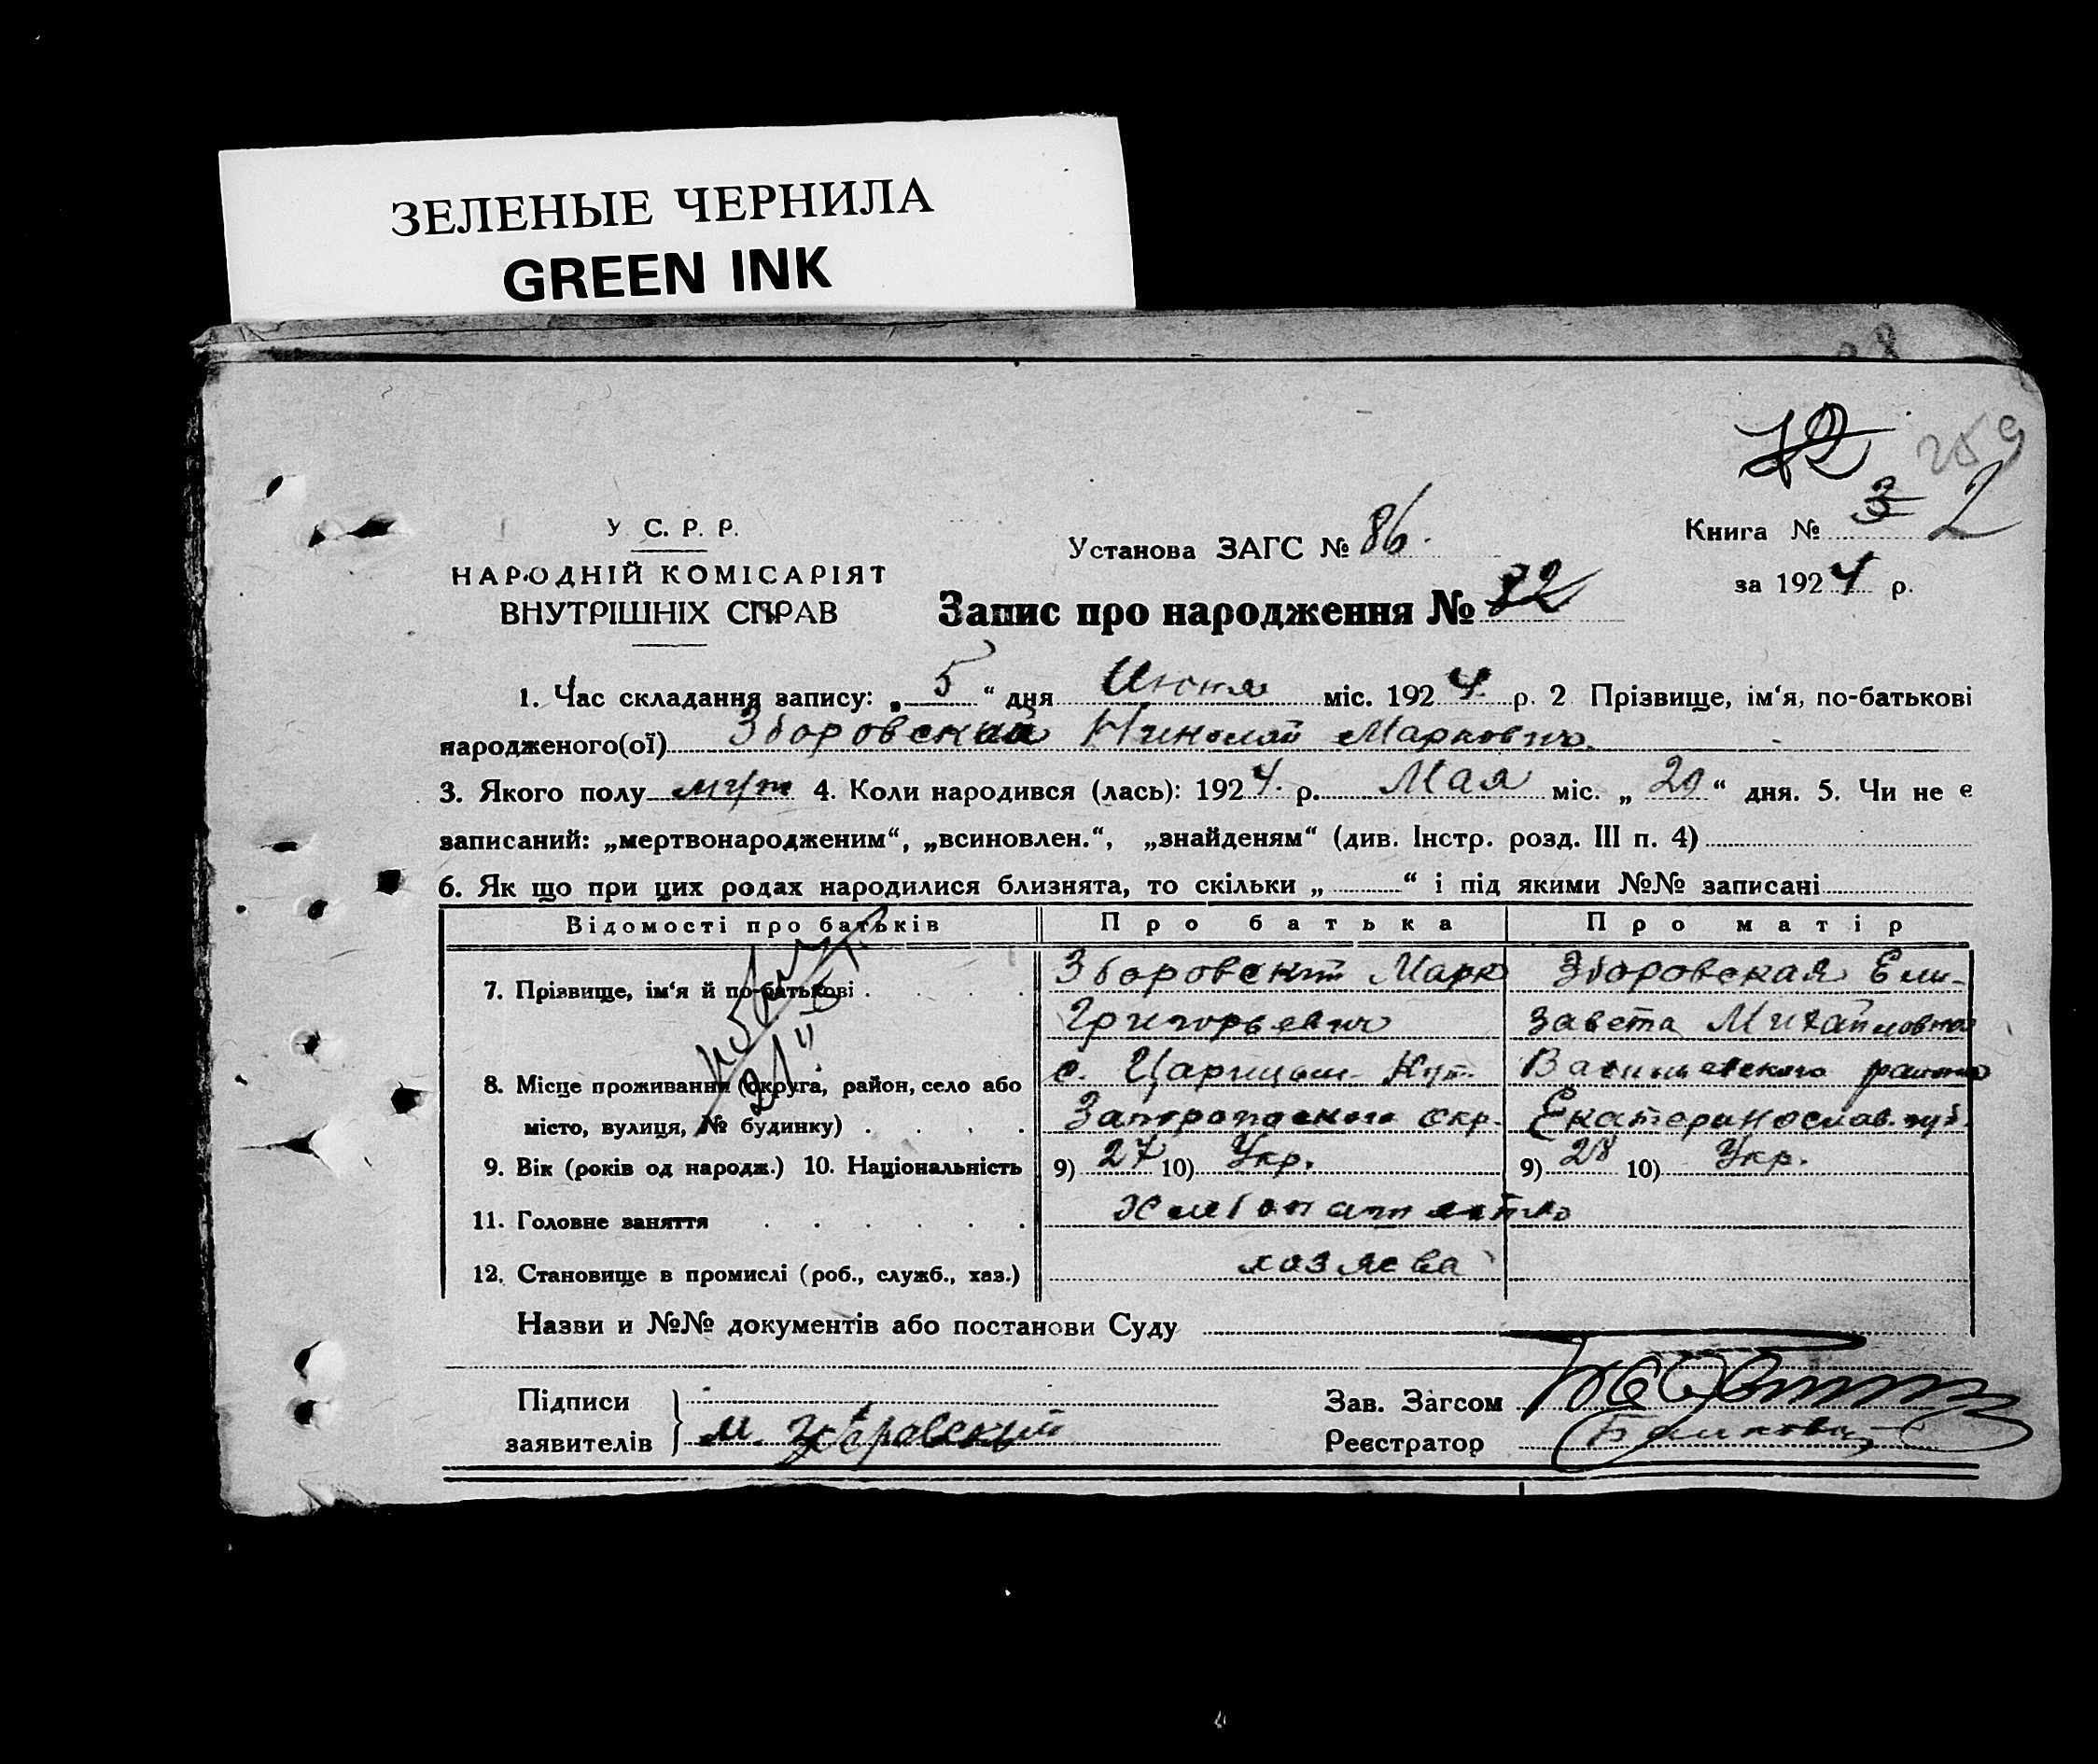 ЗЕЛЕНЫЕ ЧЕРНИЛА
GREEN INK
259
У С. Р. Р.
НАРОДНІЙ КОМІСАРІЯТ
ВНУТРІШНІХ СПРАВ
Установа ЗАГС № 86.
Книга № 3 2
за 1924 р.
Запис про народження № 82
1. Час складання запису: „ 5 “ дня Июня міс. 1924. р. 2 Прізвище, ім‘я, по-батькові
народженого(ої) Зборовский Николай Маркович.
3. Якого полу муж 4. Коли народився (лась): 1924. р. Мая міс. „ 29 “ дня. 5. Чи не є
записаний: „мертвонародженим“, „всиновлен.“, „знайденям“ (див. Інстр. розд. III п. 4)
6. Як що при цих родах народилися близнята, то скільки „ “ і під якими №№ записані
Відомості про батьків Про батька Про матір
7. Прізвище, ім‘я й по-батькові . Зборовский Марк Зборовская Ели-
Григорьевич завета Михайловна
8. Місце проживання (округа, район, село або с. Царицын Кут. Васильевского района
місто, вулиця, № будинку) . Запорожского окр. Екатеринослав. губ.
9. Вік (років од народж.) 10. Національність 9) 27 10) Укр. 9) 28 10) Укр.
11. Головне заняття
12. Становище в промислі (роб., служб., хаз.) хозяева
Назви и №№ документів або постанови Суду
Підписи Зав. Загсом
заявителів М. Зборовский Реєстратор